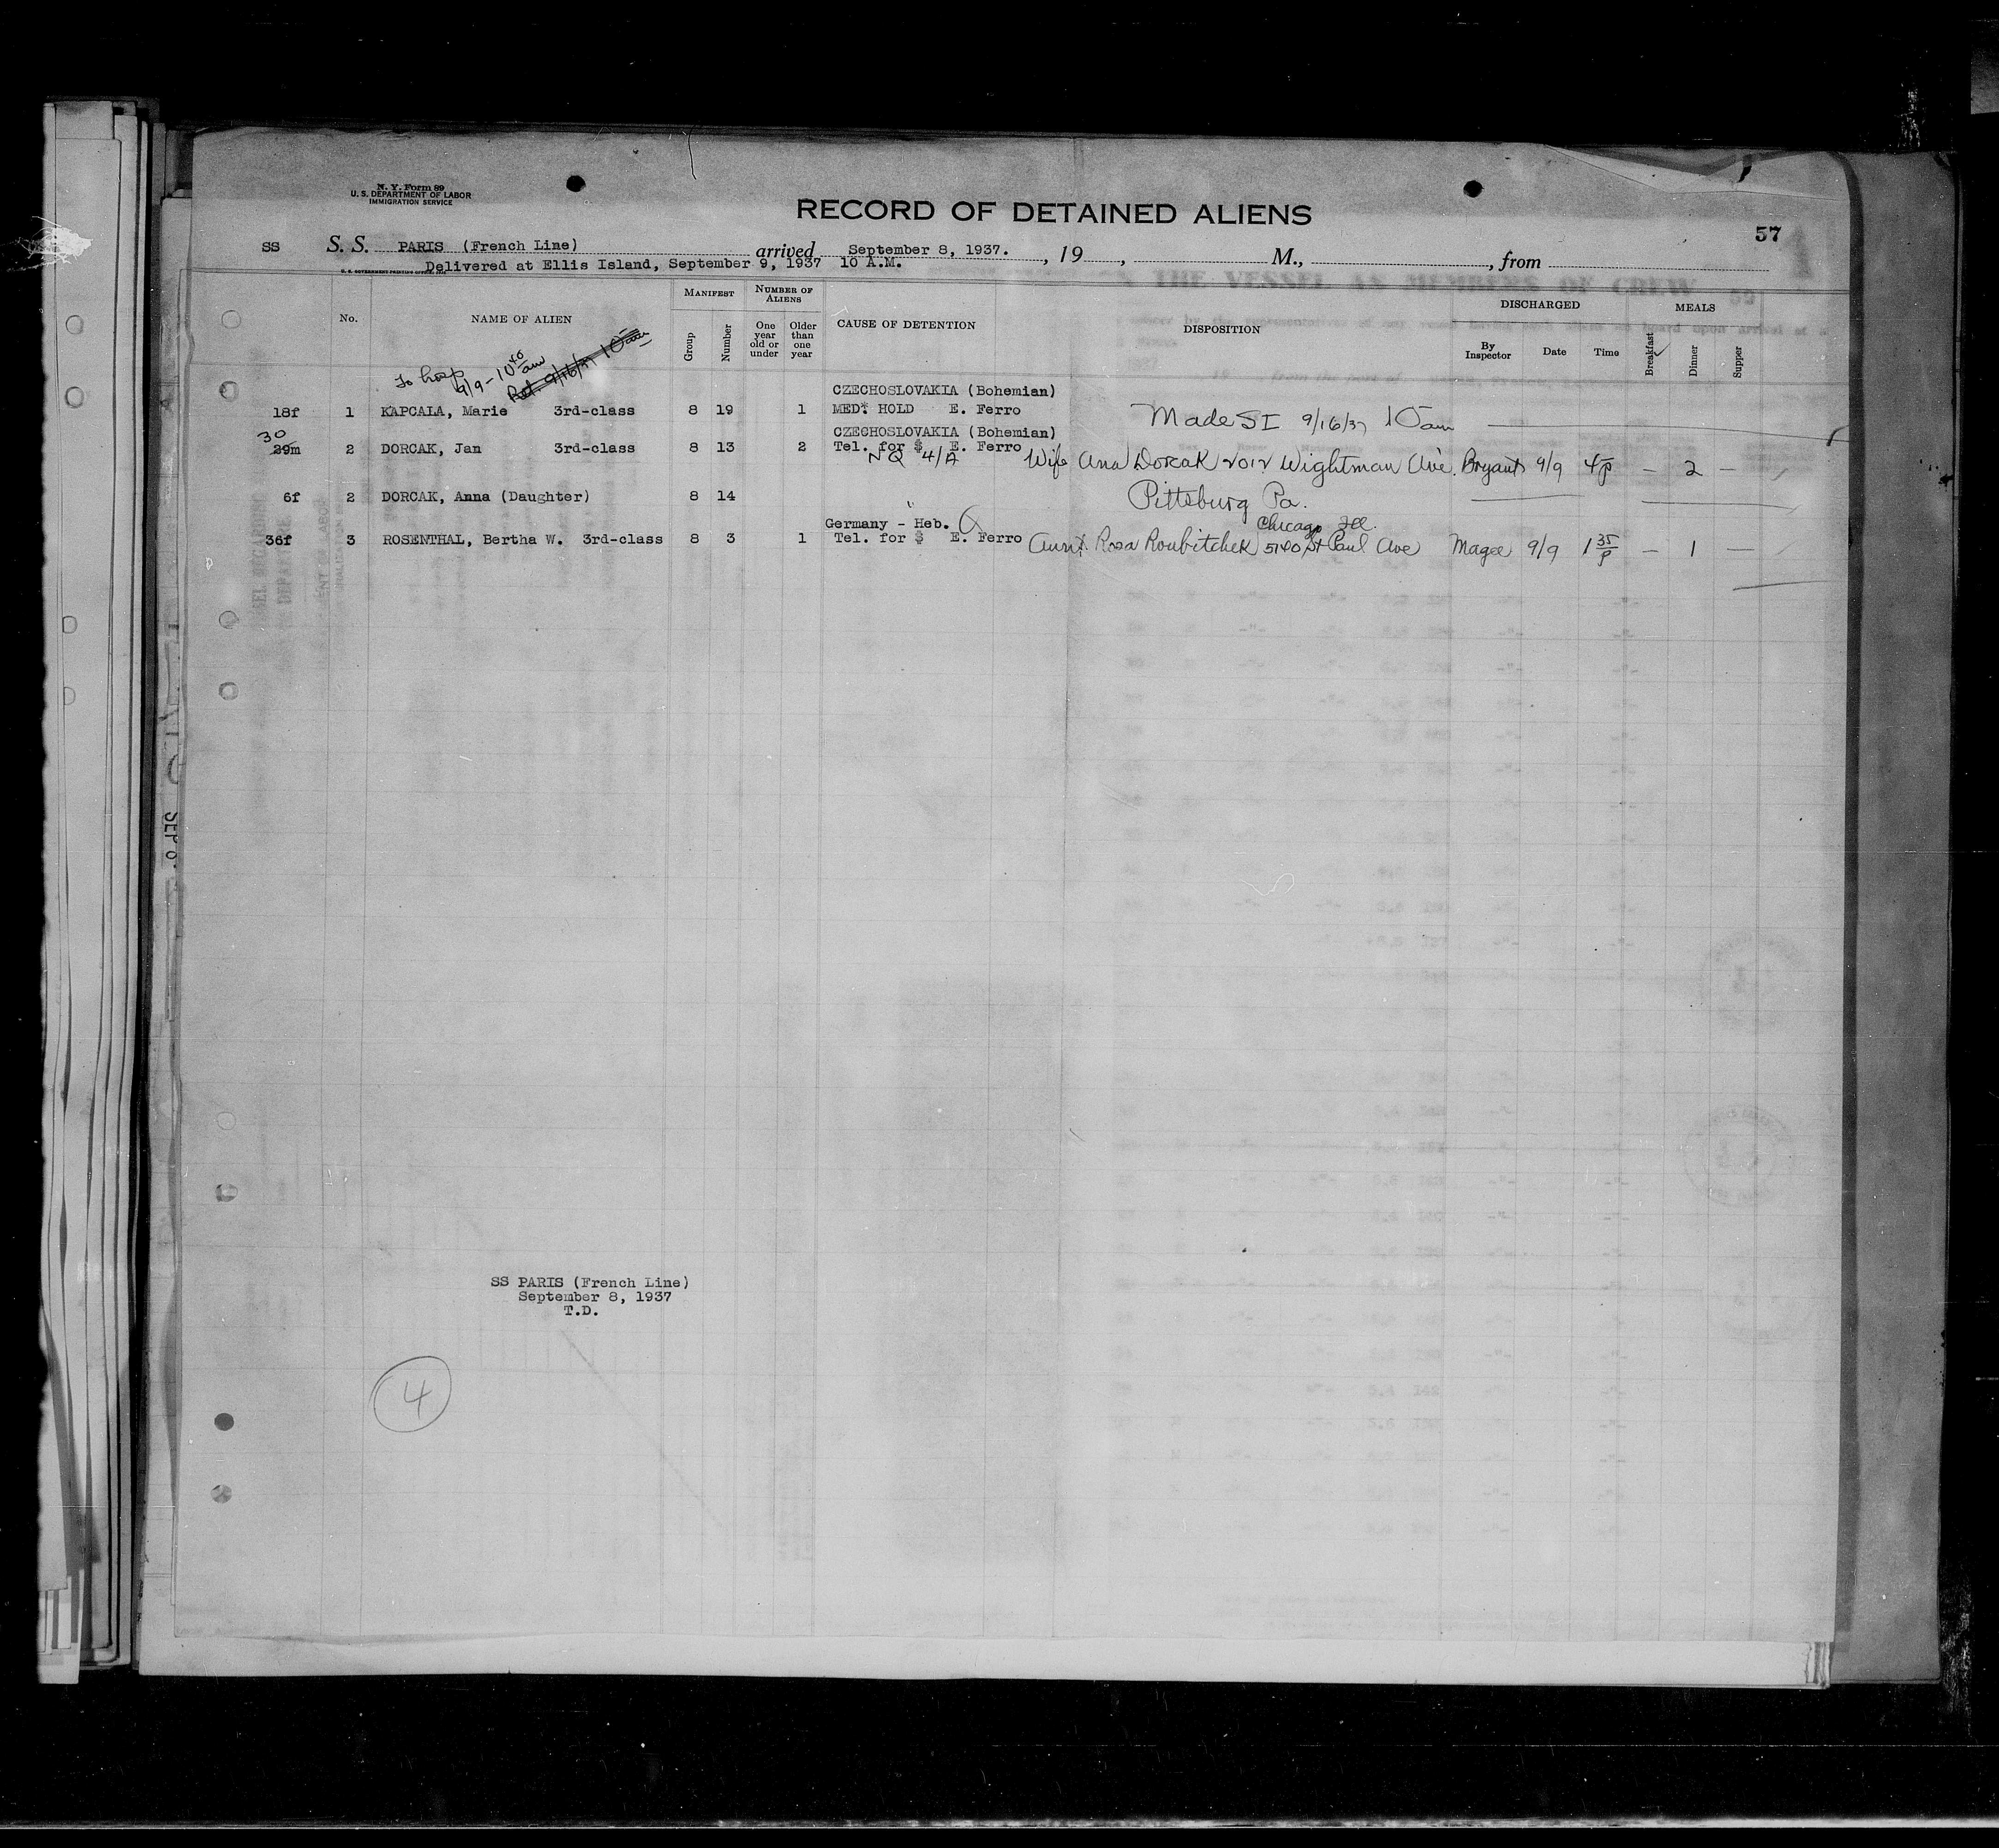 N. Y. Form 89
U. S. DEPARTMENT OF LABOR
IMMIGRATION SERVICE
RECORD OF DETAINED ALIENS
57
SS S. S. PARIS (French Line) arrived September 8, 1937. , 19 , M., , from
Delivered at Ellis Island, September 9, 1937 10 A.M.
No. NAME OF ALIEN MANIFEST Group Number NUMBER OF ALIENS One year old or under Older than one year CAUSE OF DETENTION DISPOSITION DISCHARGED By Inspector Date Time MEALS Breakfast Dinner Supper
To hosp 9/9 - 10 40 am Ret 9/16/37 10 am
CZECHOSLOVAKIA (Bohemian)
18f 1 KAPCALA, Marie 3rd-class 8 19 1 MED. HOLD E. Ferro Made SI 9/16/37 10 am
CZECHOSLOVAKIA (Bohemian)
30
29m 2 DORCAK, Jan 3rd-class 8 13 2 Tel. for $ E. Ferro Wife Ana Dorcak 2012 Wightman Ave. Bryant 9/9 4 p — 2 —
N Q 4/A
6f 2 DORCAK, Anna (Daughter) 8 14 Pittsburg Pa.
Germany - Heb. Chicago Ill.
36f 3 ROSENTHAL, Bertha W. 3rd-class 8 3 1 Tel. for $ E. Ferro Aunt Rosa Roubitchek 5140 St Paul Ave Magee 9/9 1 35 p — 1 —
SS PARIS (French Line)
September 8, 1937
T.D.
4
SEP